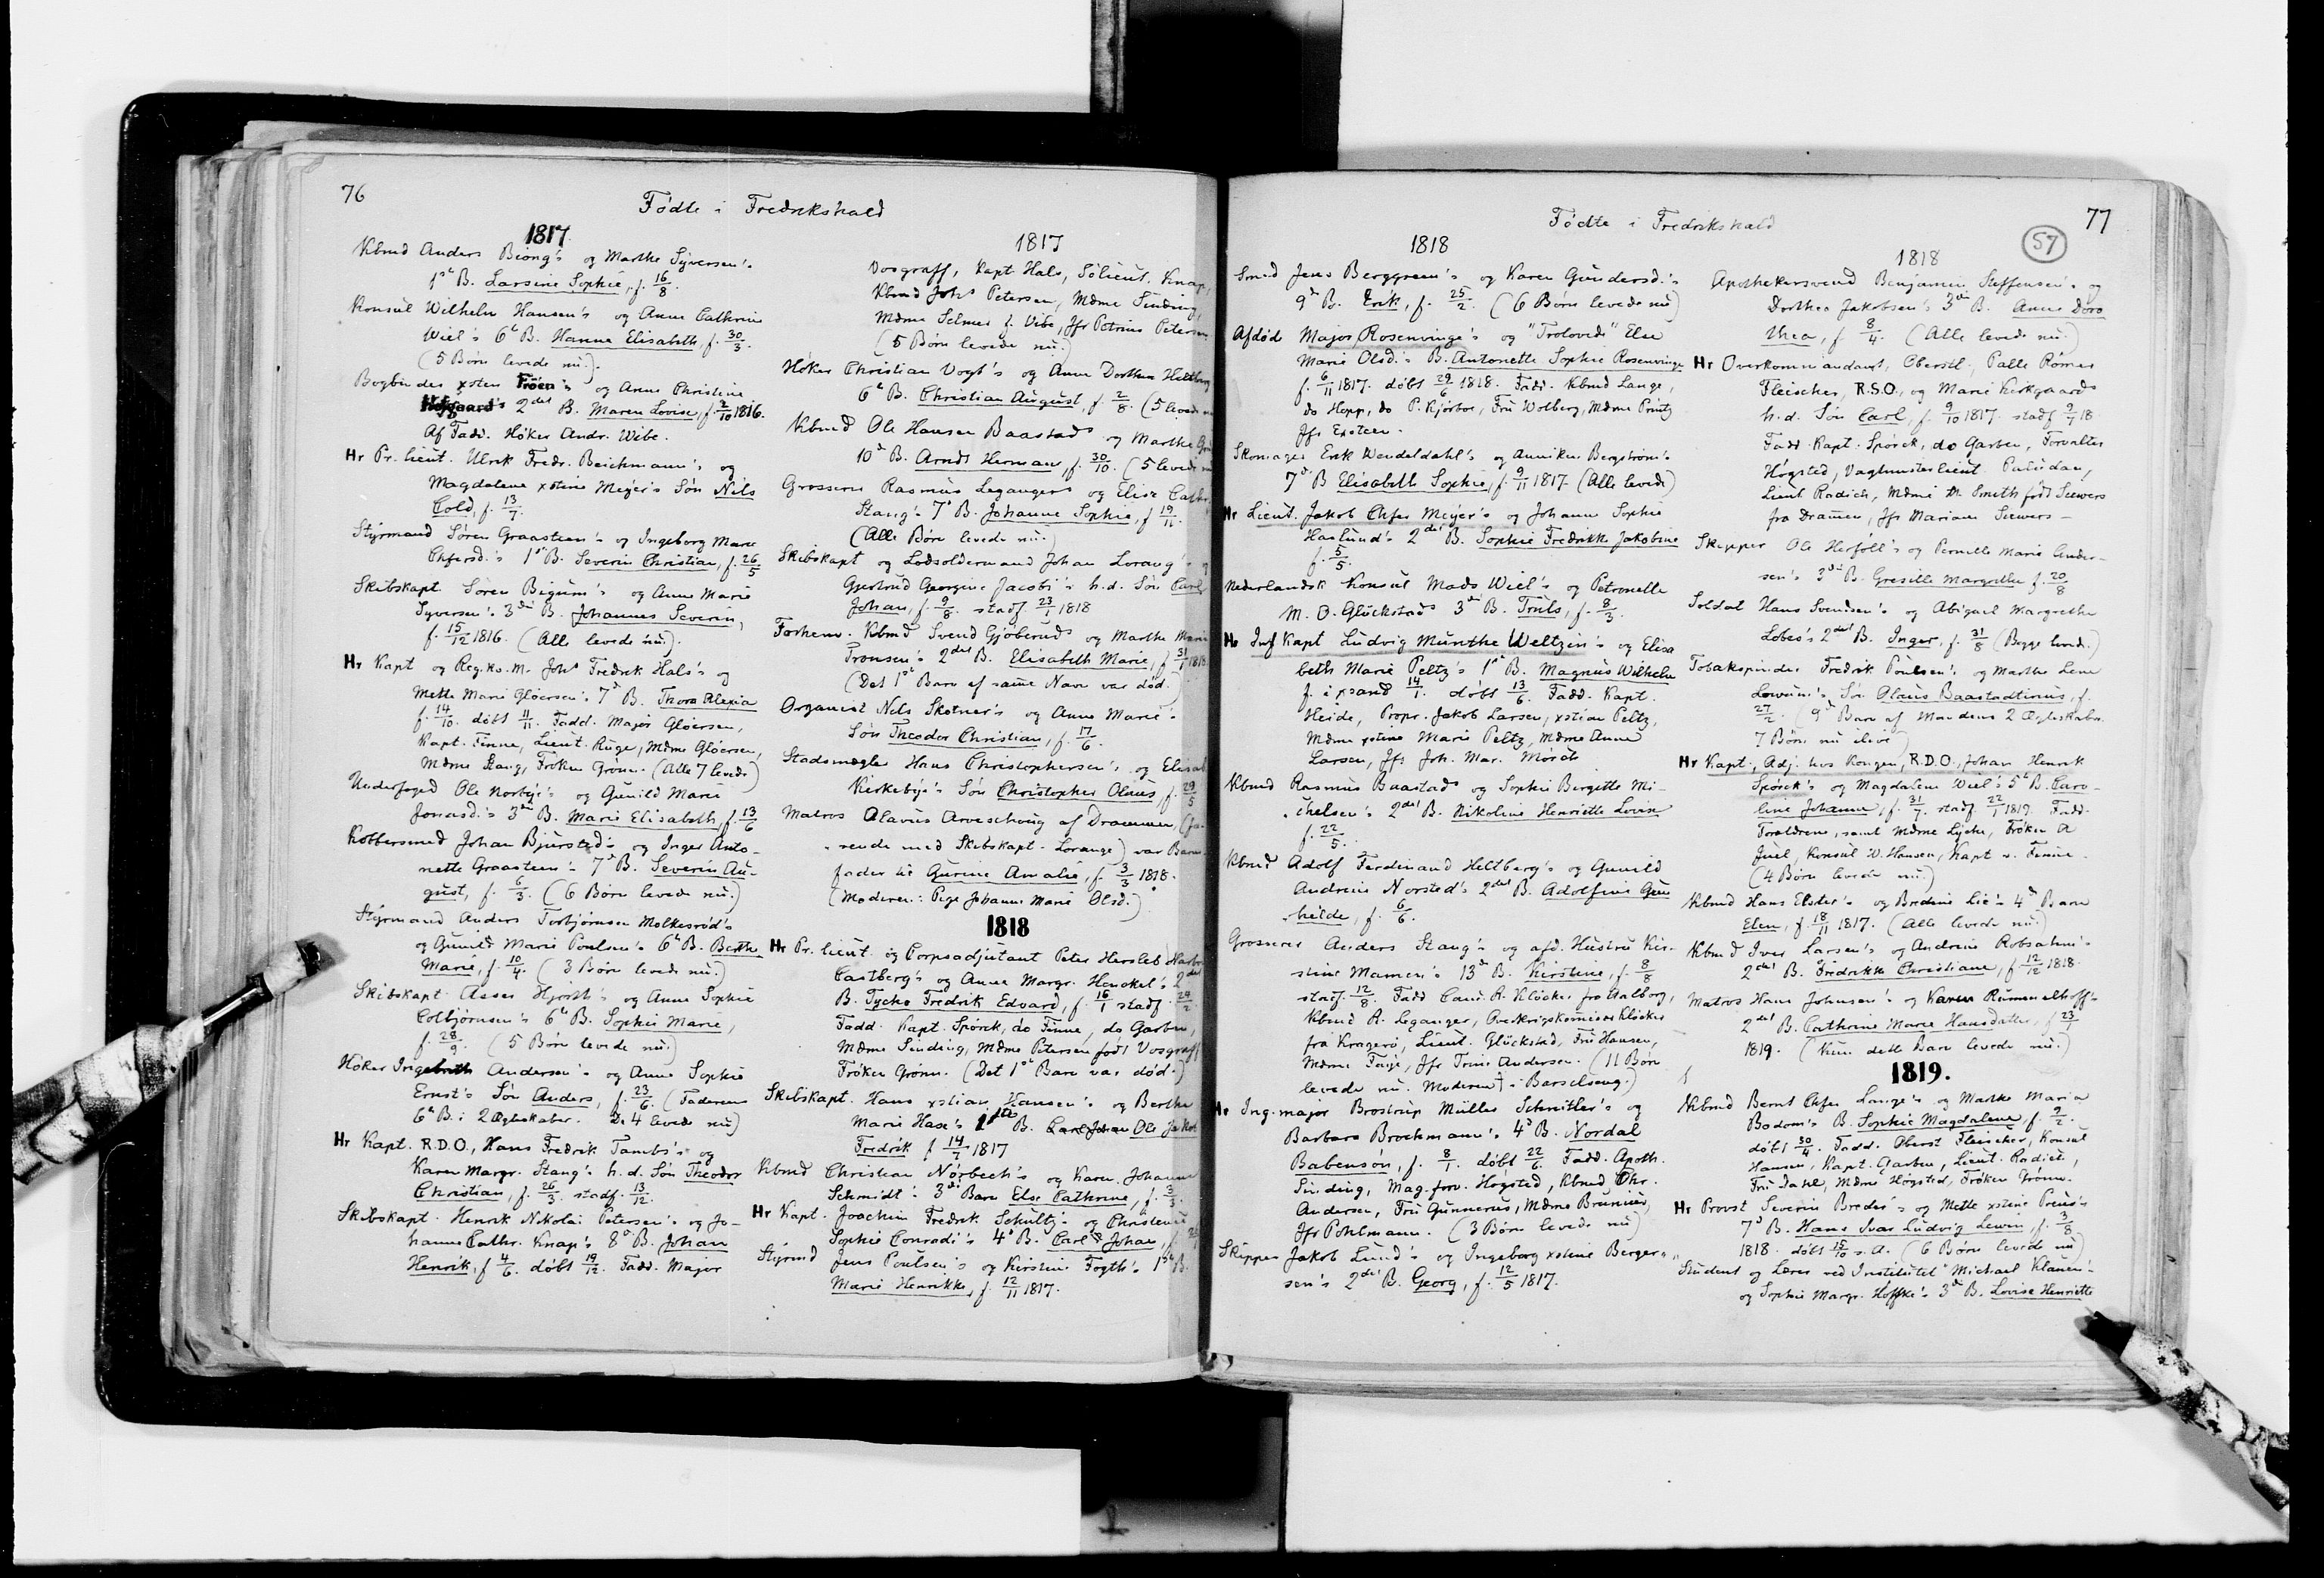 76
Fødte i Fredrikshald
1817
Kbmd Anders Biong's og Marthe Syversen's
1ste B. Larsine Sophie, f. 16/8.
Konsul Wilhelm Hansen's og Anne Cathrine
Wiel's 6te B. Hanna Elisabeth, f. 30/3.
(5 Børn levede nu.)
Bogbinder xsten Frøen's og Anne Christine
2det B. Maren Lovise, f. 2/10 1816.
Af Fadd. Høker Andr. Wibe.
Hr Pr. lieut. Ulrik Fredr. Beichmann's og
Magdalene xstine Meyer's Søn Nils
Cold, f. 13/7.
Styrmand Søren Graasteen's og Ingeborg Marie
Chfersd.'s 1ste B. Severin Christian, f. 26/5
Skibskapt. Søren Bigum's og Anne Marie
Syversen's 3die B. Johannes Severin,
f. 15/12 1816. (Alle levede nu.)
Hr Kapt og Reg.kv.m. Johs Fredrik Hals's og
Mette Marie Gløersen's 7de B. Thora Alexia
f. 14/10. døbt 11/11. Fadd. Major Gløersen,
Kapt. Finne, Lieut. Ruge, Mdme Gløersen,
Mdme Stang, Frøken Grønn. (Alle 7 levede)
Underfoged Ole Norbye's og Gunild Marie
Jonasd.'s 3die B. Marie Elisabeth, f. 13/6
Kobbersmed Johan Bjursted's og Inger Anto-
nette Graasteen's 7de B. Severin Au-
gust, f. 6/3. (6 Børn levede nu.)
Styrmand Anders Torbjørnsen Molkesrød's
og Gunild Marie Poulsen's 6te B. Berthe
Marie, f. 10/4. (3 Børn levede nu.)
Skibskapt. Asser Hjorth's og Anne Sophie
Colbjørnsen's 6te B. Sophie Marie,
f. 28/9. (5 Børn levede nu.)
Høker Ingebreth Andersen's og Anne Sophie
Ernst's Søn Anders, f. 23/6. (Faderens
6te B. i 2 Ægteskaber. De 4 levede nu)
Hr Kapt. R.D.O., Hans Fredrik Tambs's og
Karen Margr. Stang's h.d. Søn Theodor
Christian, f. 26/3. stadf. 13/12.
Skibskapt. Henrik Nikolai Petersen's og Jo-
hanne Cathr. Knap's 8de B. Johan
Henrik, f 4/6. døbt 19/12. Fadd. Major
1817
Vosgraff, Kapt. Hals, Sølieut. Knap,
Kbmd Johs Petersen, Mdme Sinding,
Mdme Selmer f. Vibe, Jfr Petrine Petersen
(5 Børn levede nu.)
Høker Christian Vogt's og Anne Dorthea Heltberg
6te B. Christian August, f. 2/8. (5 levede
Kbmd Ole Hansen Baastad's og Marthe
10de B. Arndt Herman, f. 30/10. (5 levede
Grosserer Rasmus Leganger's og Elise Cathr.
Stang's 7de B. Johanne Sophie, f 19/11.
(Alle Børn levede nu.)
Skibskapt og Lodsoldermand Johan Lorang's
Gjertrud Georgine Jacobi's h.d. Søn Carl
Johan, f. 9/8. stadf 23/1 1818
Forhenv. Kbmd Svend Gjøberud's og Marthe Marie
Pronsen's 2det B. Elisabeth Marie, f 31/1 1818.
(Det 1ste Barn af samme Navn var død.)
Organist Nils Skotner's og Anne Marie's
Søn Theodor Christian, f. 17/6.
Stadsmægler Hans Christophersen's og Elisab
Kirkebye's Søn Christopher Olaus, f. 29/5
Matros Olavus Arveschoug af Drammen, (fa-
rende med Skibskapt. Lorange) var Barne-
fader til Gurine Amalie, f. 3/3 1818.
(Moderen: Pige Johanne Marie Olsd.)
1818
Hr Pr. lieut. og Corpsadjutant Peter Hersleb Harboe
Castberg's og Anne Margr. Henckel's 2det
B. Tycho Fredrik Edvard, f. 16/1 stadf. 24/2
Fadd. Kapt. Spørck, do Finne, do Garben,
Mdme Sinding, Mdme Petersen født Vosgraff
Frøken Grønn. (Det 1ste Barn var død.)
Skibskapt. Hans xstian Hansen's og Berthe
Marie Hase's 1ste B. Carl Johan Ole Jakob
Fredrik f 14/7 1817
Kbmd Christian Nørbech's og Karen Johanne
Schmidt's 3die Barn Else Cathrine, f. 3/3.
Hr Kapt. Joachim Fredrik Schultz's og Christence
Sophie Conradi's 4de B. Carl Johan, f.
Styrmd Jens Poulsen's og Kirstine Fogth's 1ste B.
Marie Henrikke, f. 12/11 1817.
77
57
Fødte i Fredrikshald
1818
Smed Jens Berggreen's og Karen Gundersd.'s
9de B. Erik, f. 25/2. (6 Børn levede nu)
Afdød Major Rosenvinge's og "Trolovede" Else
Marie Olsd.'s B. Antonette Sophie Rosenvinge
f. 6/11 1817. døbt 29/6 1818. Fadd. Kbmd Lange,
do Hopp, do P. Kjørboe, Fru Wolberg, Mdme Printz
Jfr Ensteen.
Skomager Erik Wendeldahl's og Anniken Bergstrøm's
7de B Elisabeth Sophie, f. 9/11 1817. (Alle levede)
Hr Lieut. Jakob Chfer Meyer's og Johanne Sophie
Haslund's 2det B. Sophie Fredrikke Jakobine
f. 5/5.
Nederlandsk Konsul Mads Wiel's og Petronelle
M. O. Glückstad's 3die B. Truls, f. 8/3.
Hr Inf Kapt Ludvig Munthe Weltzin's og Elisa
beth Marie Peltz's 1ste B. Magnus Wilhelm
f. i xsand 14/1. døbt 13/6. Fadd. Kapt.
Heide, Propr. Jakob Larsen, xstian Peltz,
Mdme xstine Marie Peltz, Mdme Anne
Larsen, Jfr Joh. Mar. Mørch
Kbmd Rasmus Baastad's og Sophie Birgitte Mi-
chelsen's 2det B. Nikoline Henriette Lovise
f. 22/5.
Kbmd Adolf Ferdinand Heltberg's og Gunild
Andreine Norsted's 2det B. Adolfine Gun
hilde, f. 6/6.
Grosserer Anders Stang's og afd. Hustru Kir-
stine Mamen's 13de B. Kirstine, f. 8/8
stadf. 12/8. Fadd Cand. A. Klöcker fra Aalborg,
Kbmd R. Leganger, Overkrigskommissær Klöcker
fra Kragerø, Lieut. Glückstad, Fru Hansen,
Mdme Faye, Jfr Trine Andersen. (11 Børn
levede nu. Moderen † i Barselseng.)
Hr Ing. major Brostrup Müller Schnitler's og
Barbara Brochmann's 4de B. Nordal
Babensøn, f. 8/1. døbt 22/6. Fadd. Apoth.
Sinding, Mag.forv. Høgsted, Kbmd Chr.
Andersen, Fru Gunnerus, Mdme Brunius,
Jfr Pohlmann. (3 Børn levede nu)
Skipper Jakob Lund's og Ingeborg xstine Berger-
sen's 2det B. Georg, f. 12/5 1817.
1818
Apothekersvend Benjamin Steffensen's og
Dorthea Jakobsen's 3die B. Anne Doro
thea, f 8/4. (Alle levede nu.)
Hr Overkommandant, Oberstl. Palle Rømer
Fleischer, R.S.O., og Marie Kirkgaard's
h.d. Søn Carl, f. 9/10 1817. stadf 9/7 18.
Fadd. Kapt. Spørck, do Garben, Forvalter
Høgsted, Vagtmesterlieut. Paludan,
Lieut Radich, Mdme M. Smith født Siewers
fra Drammen, Jfr Mariane Siewers -
Skipper Ole Herføll's og Pernille Marie Ander-
sen's 3die B. Gresille Margrethe f. 20/8
Soldat Hans Svendsen's og Abigael Margrethe
Løbes's 2det B. Inger, f. 31/8 (Begge levede.)
Tobakspinder Fredrik Poulsen's og Marthe Lene
Lovum's Søn Olaus Baastadtinus, f.
27/2. (9de Barn af Mandens 2 Ægteskaber.
7 Børn nu ilive)
Hr Kapt., Adj. hos Kongen, R.D.O., Johan Henrik
Spørck's og Magdalene Wiel's 5te B. Caro-
line Johanne, f. 31/7. stadf. 22/1 1819. Fadd.
Forældrene, samt Mdme Lyche, Frøken A
Juel, Konsul W. Hansen, Kapt v. Finne.
(4 Børn levede nu.)
Kbmd Hans Elster's og Bredine Lie's 4de Barn
Elen, f. 18/11 1817. (Alle levede nu.)
Kbmd Iver Larsen's og Andrine Robsahm's
2det B. Fredrikke Christiane, f. 12/12 1818.
Matros Hans Johnsen's og Karen Rummelhoff's
2det B. Cathrine Marie Hansdatter, f 23/1
1819. (Kun dett Barn levede nu.)
1819.
Kbmd Bernt Chfer Lange's og Marthe Maria
Bodom's B. Sophie Magdalene, f. 9/2.
døbt 30/4. Fadd. Oberst Fleischer, Konsul
Hansen, Kapt. Garben, Lieut. Radich,
Fru Dahl, Mdme Høgsted, Frøken Grønn.
Hr Provst Severin Breder's og Mette xstine Preus's
7de B. Hans Ivar Ludvig Lewin, f. 3/8
1818. døbt 15/10 s. A. (6 Børn levede nu)
Student og Lærer ved Institutet Michael Klanen's
og Sophie Margr. Høffke's 3die B. Lovise Henriette